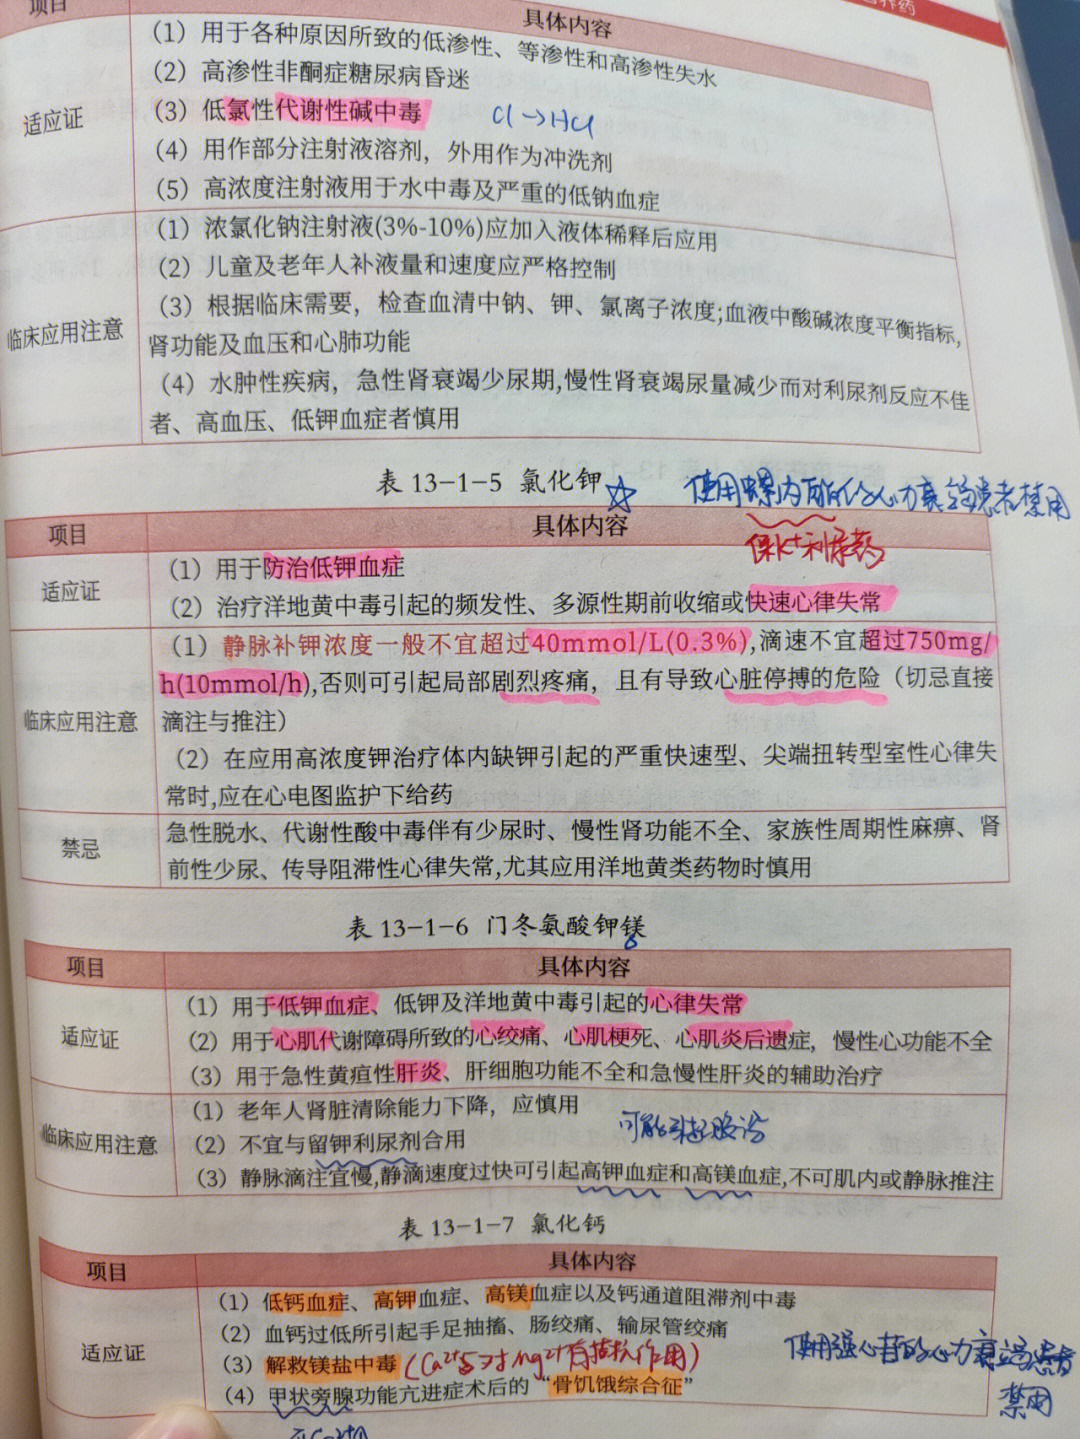 营养药
项目 具体内容
适应证
（1）用于各种原因所致的低渗性、等渗性和高渗性失水
（2）高渗性非酮症糖尿病昏迷
（3）低氯性代谢性碱中毒 Cl→HCl
（4）用作部分注射液溶剂，外用作为冲洗剂
（5）高浓度注射液用于水中毒及严重的低钠血症
临床应用注意
（1）浓氯化钠注射液(3%-10%)应加入液体稀释后应用
（2）儿童及老年人补液量和速度应严格控制
（3）根据临床需要，检查血清中钠、钾、氯离子浓度;血液中酸碱浓度平衡指标,
肾功能及血压和心肺功能
（4）水肿性疾病，急性肾衰竭少尿期,慢性肾衰竭尿量减少而对利尿剂反应不佳
者、高血压、低钾血症者慎用
表 13-1-5 氯化钾☆ 使用螺内酯的心力衰竭患者禁用
保K+利尿药
项目 具体内容
适应证
（1）用于防治低钾血症
（2）治疗洋地黄中毒引起的频发性、多源性期前收缩或快速心律失常
临床应用注意
（1）静脉补钾浓度一般不宜超过40mmol/L(0.3%),滴速不宜超过750mg/
h(10mmol/h),否则可引起局部剧烈疼痛，且有导致心脏停搏的危险（切忌直接
滴注与推注）
（2）在应用高浓度钾治疗体内缺钾引起的严重快速型、尖端扭转型室性心律失
常时,应在心电图监护下给药
禁忌
急性脱水、代谢性酸中毒伴有少尿时、慢性肾功能不全、家族性周期性麻痹、肾
前性少尿、传导阻滞性心律失常,尤其应用洋地黄类药物时慎用
表 13-1-6 门冬氨酸钾镁
项目 具体内容
适应证
（1）用于低钾血症、低钾及洋地黄中毒引起的心律失常
（2）用于心肌代谢障碍所致的心绞痛、心肌梗死、心肌炎后遗症，慢性心功能不全
（3）用于急性黄疸性肝炎、肝细胞功能不全和急慢性肝炎的辅助治疗
临床应用注意
（1）老年人肾脏清除能力下降，应慎用
（2）不宜与留钾利尿剂合用 可能引起腹泻
（3）静脉滴注宜慢,静滴速度过快可引起高钾血症和高镁血症,不可肌内或静脉推注
表 13-1-7 氯化钙
项目 具体内容
适应证
（1）低钙血症、高钾血症、高镁血症以及钙通道阻滞剂中毒
（2）血钙过低所引起手足抽搐、肠绞痛、输尿管绞痛
（3）解救镁盐中毒（Ca2+与对Mg2+有拮抗作用） 使用强心苷的心力衰竭患者
（4）甲状旁腺功能亢进症术后的“骨饥饿综合征” 禁用